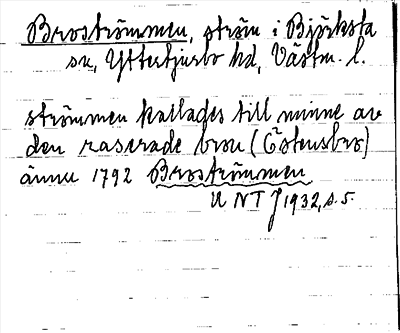 Broströmmen, ström i Björksta
sn, Yttertjurbo hd, Västm. l.
strömmen kallades till minne av
den raserade bron (Östensbro)
ännu 1792 Broströmmen
UNTJ 1932, s. 5.